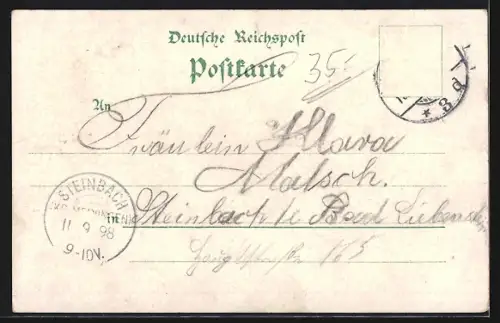 Deutsche Reichspost
Postkarte
35.-
An
Fräulein Klara
Malsch.
Steinbach b Bad Liebenstein
Hauptstraße 125
STEINBACH
11 9 98
9-10V.